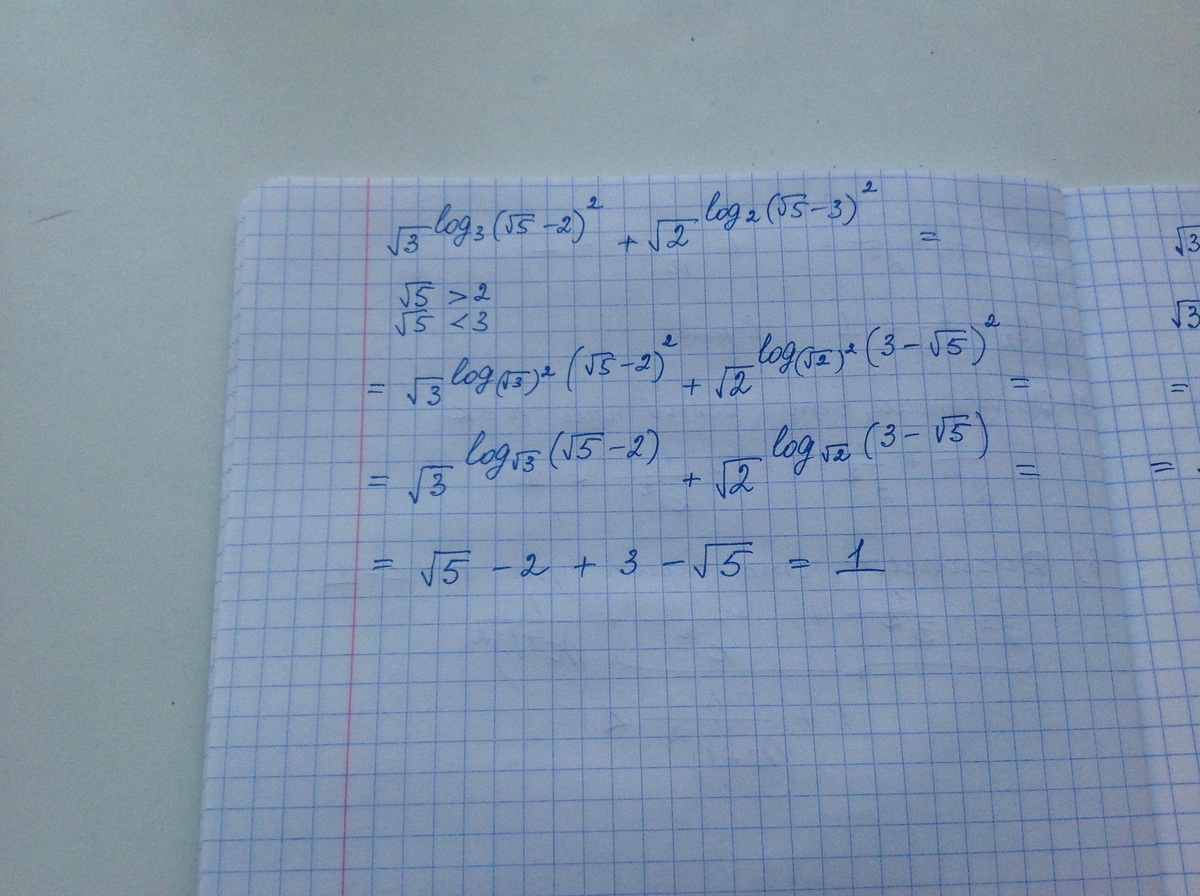 √3^log₃(√5-2)² + √2^log₂(√5-3)² =
√5 > 2
√5 < 3
= √3^log₍√3₎²(√5-2)² + √2^log₍√2₎²(3-√5)² =
= √3^log√3(√5-2) + √2^log√2(3-√5) =
= √5 - 2 + 3 - √5 = 1
√3
√3
=
=